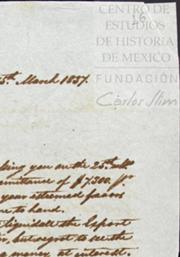 CENTRO DE
ESTUDIOS
DE HISTORIA
DE MEXICO
FUNDACIÓN
Carlos Slim
16
5th March 1837.
king you on the 25th
emittance of $7,300
your esteemed favors
me to hand.
liquidate the Export
but regret to see the
money at interest.